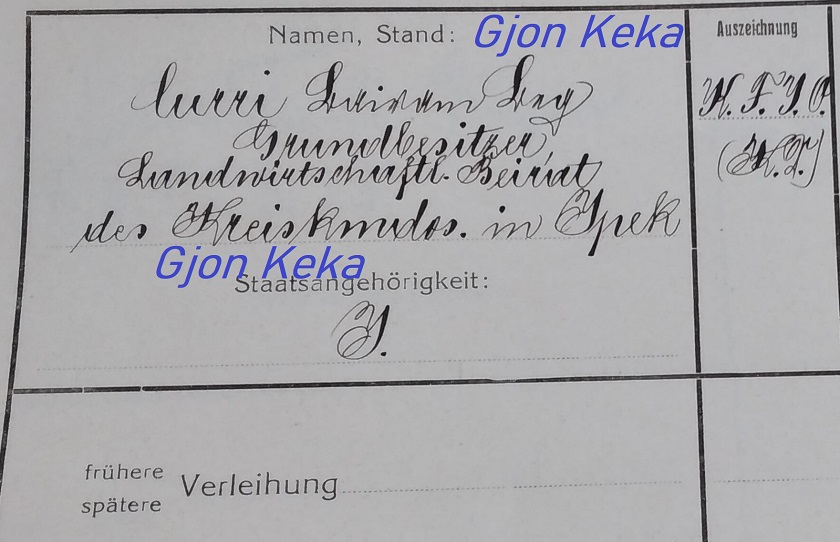 Namen, Stand: Gjon Keka
Auszeichnung
Curri Bairam Beg
K. F. J. O.
Grundbesitzer,
(K. D.)
Landwirtschaftl. Beirat
des Kreiskmdos. in Ipek
Gjon Keka
Staatsangehörigkeit:
J.
frühere
spätere
Verleihung